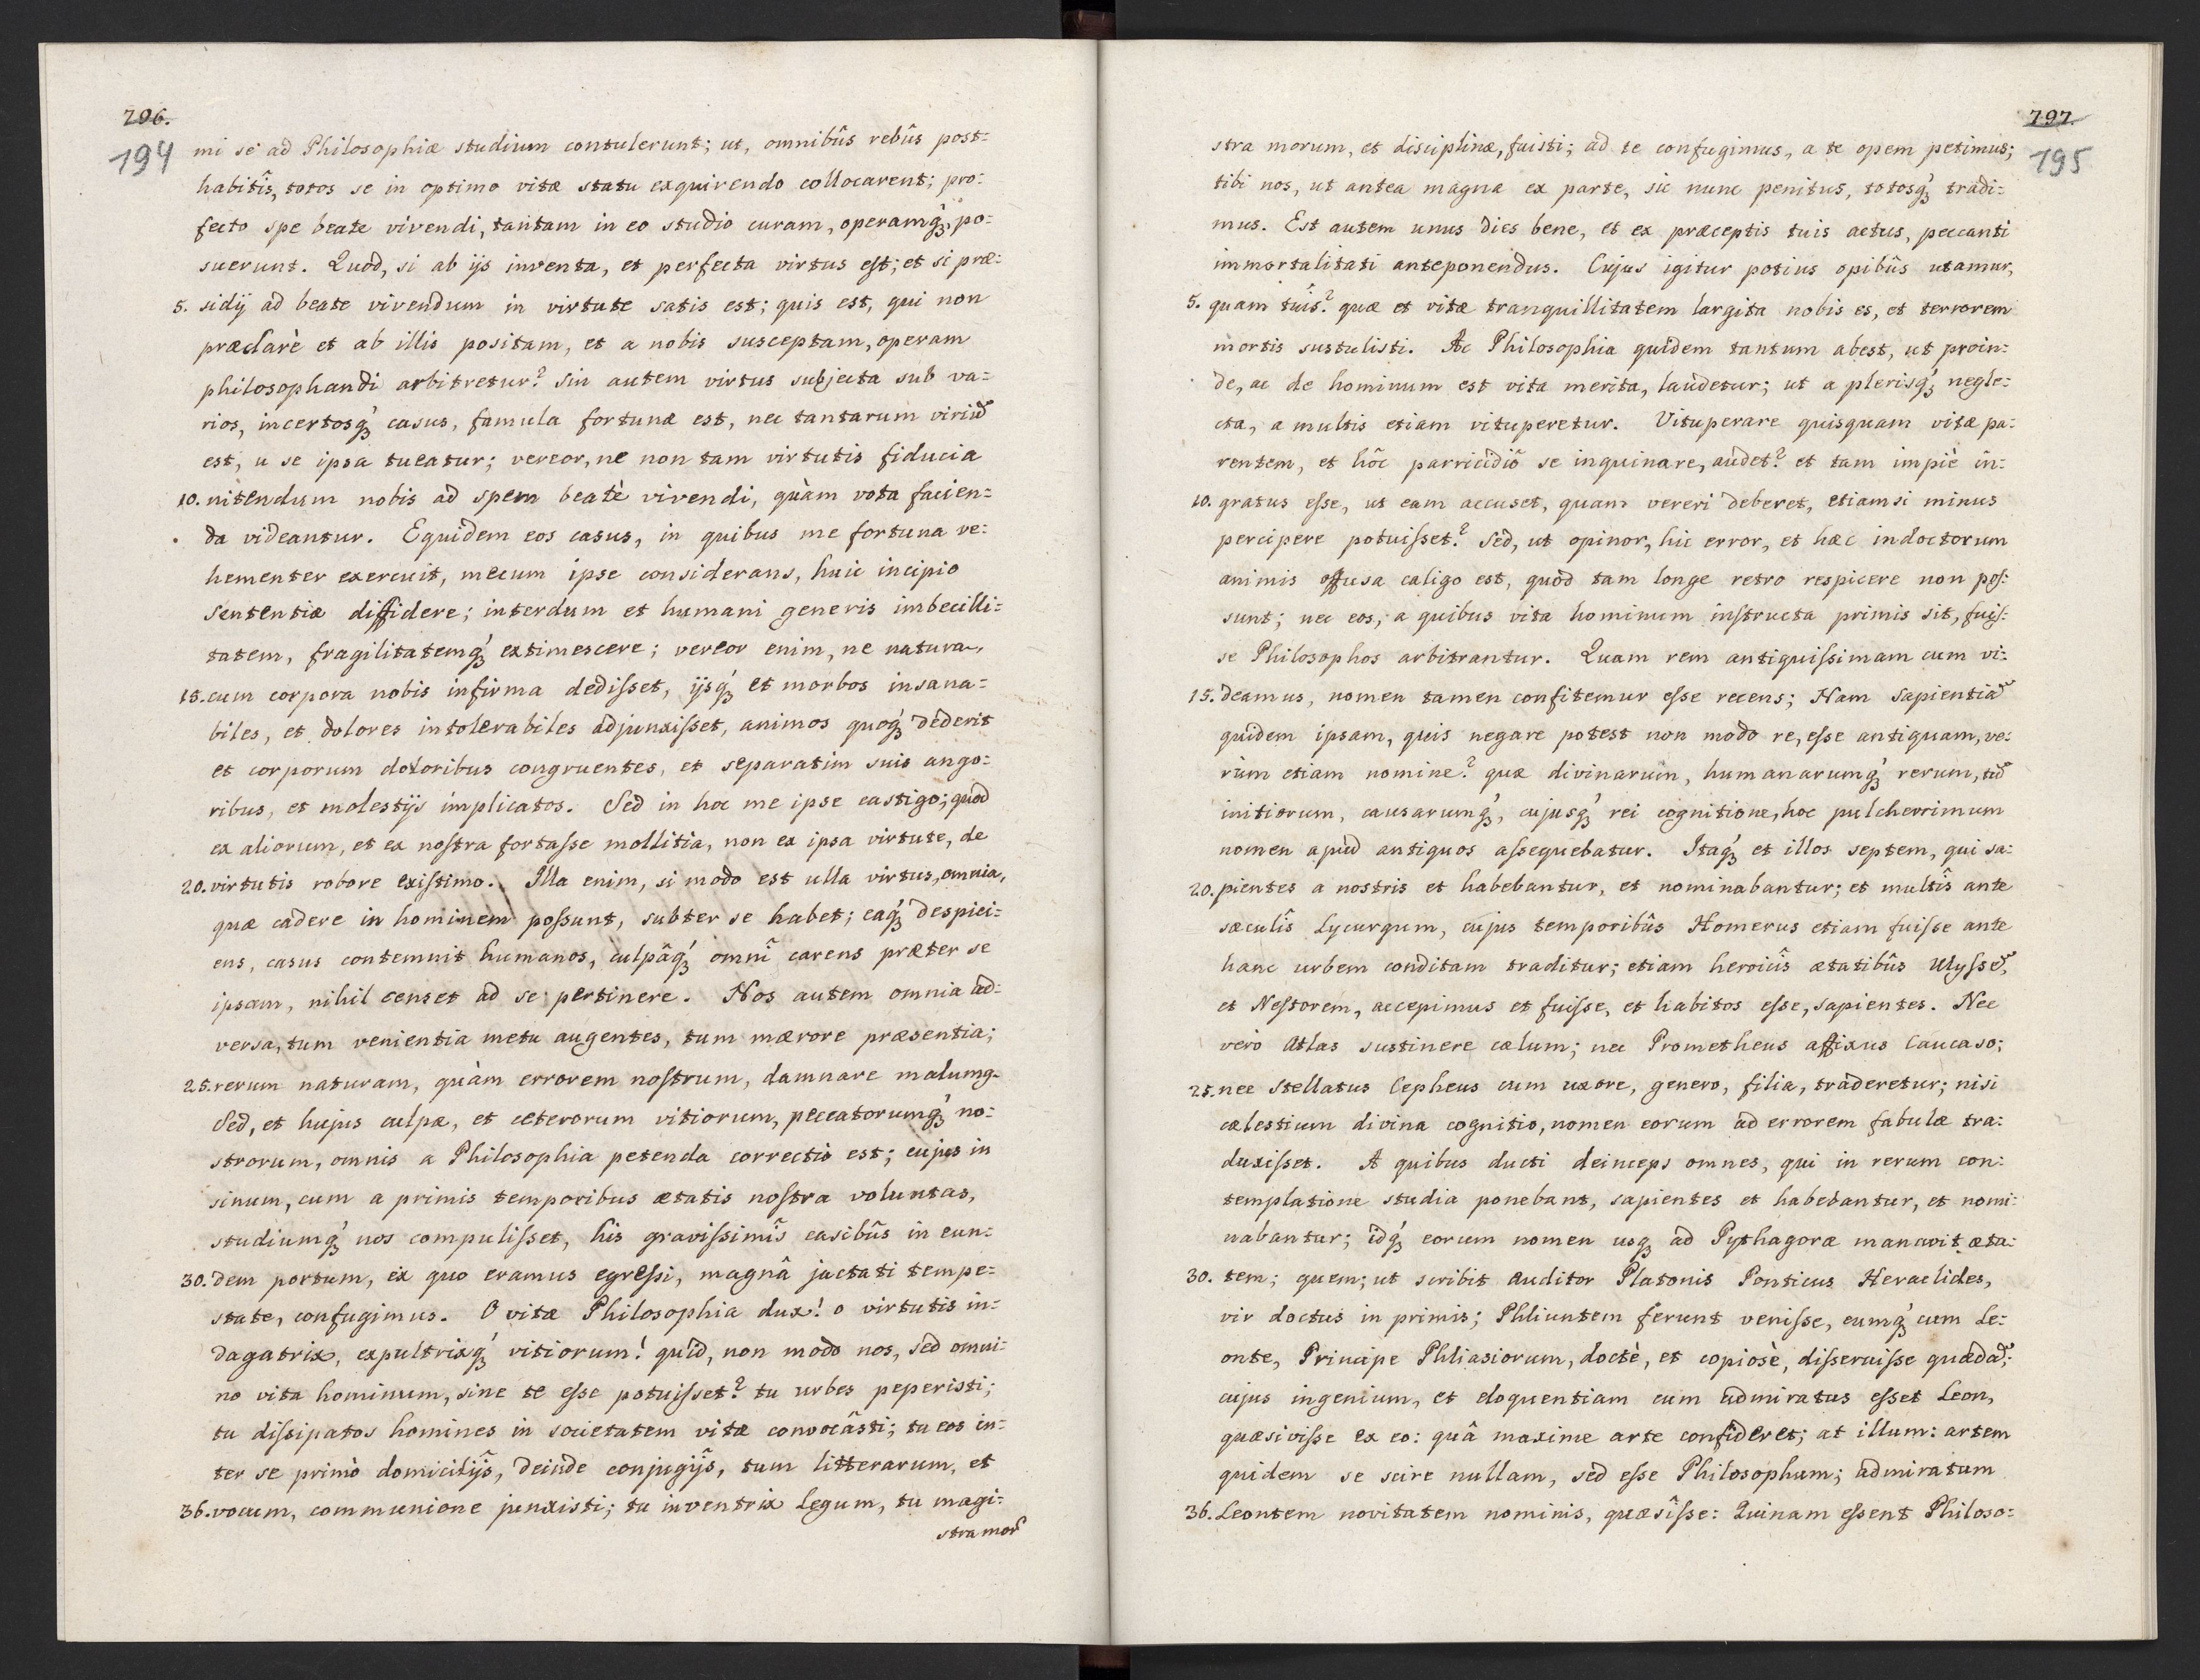 796.
194
mi se ad Philosophiæ studium contulerunt; ut, omnibûs rebûs post=
habitîs, totos se in optimo vitæ statu exquirendo collocarent; pro=
fecto spe beate vivendi, tantam in eo studio curam, operamq́ꝫ, po=
suerunt. Quod, si ab ijs inventa, et perfecta virtus est; et si præ=
5. sidij ad beate vivendum in virtute satis est; quis est, qui non
præclarè et ab illis positam, et a nobis susceptam, operam
philosophandi arbitretur? Sin autem virtus subjecta sub va=
rios, incertosq́ꝫ casus, famula fortunæ est, nec tantarum viriũ
est, u se ipsa tueatur; vereor, ne non tam virtutis fiducia
10. nitendum nobis ad spem beatè vivendi, quàm vota facien=
da videantur. Equidem eos casus, in quibus me fortuna ve=
hementer exercuit, mecum ipse considerans, huic incipio
sententiæ diffidere; interdum et humani generis imbecilli=
tatem, fragilitatemq́ꝫ extimescere; vereor enim, ne natura,
15. cum corpora nobis infirma dedisset, ijsq́ꝫ et morbos insana=
biles, et dolores intolerabiles adjunxisset, animos quoq́ꝫ dederit
et corporum doloribus congruentes, et separatim suis ango=
ribus, et molestijs implicatos. Sed in hoc me ipse castigo; quod
ex aliorum, et ex nostra fortasse mollitia, non ex ipsa virtute, de
20. virtutis robore existimo. Illa enim, si modo est ulla virtus, omnia,
quæ cadere in hominem possunt, subter se habet; eaq́ꝫ despici=
ens, casus contemnit humanos, culpâq́ꝫ omnî carens præter se
ipsam, nihil censet ad se pertinere. Nos autem omnia ad=
versa, tum venientia metu augentes, tum mærore præsentia;
25. rerum naturam, quàm errorem nostrum, damnare malumq.
Sed, et hujus culpæ, et ceterorum vitiorum, peccatorumq́ꝫ no=
strorum, omnis a Philosophia petenda correctio est; cujus in
sinum, cum a primis temporibus ætatis nostra voluntas,
studiumq́ꝫ nos compulisset, his gravissimîs casibûs in eun=
30. dem portum, ex quo eramus egressi, magnâ jactati tempe=
state, confugimus. O vitæ Philosophia dux! o virtutis in=
dagatrix, expultrixq́ꝫ vitiorum! quid, non modo nos, sed omni=
no vita hominum, sine te esse potuisset? tu urbes peperisti;
tu dissipatos homines in societatem vitæ convocâsti; tu eos in=
ter se primò domicilijs, deinde conjugijs, tum litterarum, et
36. vocum, communione junxisti; tu inventrix legum, tu magi=
stra mor̃
797.
195
stra morum, et disciplinæ, fuisti; ad te confugimus, a te opem petimus;
tibi nos, ut antea magna ex parte, sic nunc penitus, totosq́ꝫ tradi=
mus. Est autem unus dies bene, et ex præceptis tuis actus, peccanti
immortalitati anteponendus. Cujus igitur potius opibûs utamur,
5. quam tuîs? quæ et vitæ tranquillitatem largita nobis es, et terrorem
mortis sustulisti. Ac Philosophia quidem tantum abest, ut proin=
de, ac de hominum est vita merita, laudetur; ut a plerisq́ꝫ negle=
cta, a multis etiam vituperetur. Vituperare quisquam vitæ pa=
rentem, et hôc parricidiô se inquinare, audet? et tam impiè in=
10. gratus esse, ut eam accuset, quam vereri deberet, etiamsi minus
percipere potuisset? Sed, ut opinor, hic error, et hæc indoctorum
animis offusa caligo est, quòd tam longe retro respicere non pos=
sunt; nec eos, a quibus vita hominum instructa primis sit, fuis=
se Philosophos arbitrantur. Quam rem antiquissimam cum vi=
15. deamus, nomen tamen confitemur esse recens; Nam sapientiã
quidem ipsam, quis negare potest non modo re, esse antiquam, ve=
rùm etiam nomine? quæ divinarum, humanarumq́ꝫ rerum, tũ
initiorum, causarumq́ꝫ, cujusq́ꝫ rei cognitione, hoc pulcherrimum
nomen apud antiquos assequebatur. Itaq́ꝫ et illos septem, qui sa=
20. pientes a nostris et habebantur, et nominabantur; et multîs ante
sæculîs Lycurgum, cujus temporibûs Homerus etiam fuisse ante
hanc urbem conditam traditur; etiam heroicîs ætatibûs Ulyssẽ,
et Nestorem, accepimus et fuisse, et habitos esse, sapientes. Nec
verò Atlas sustinere cælum; nec Prometheus affixus Caucaso;
25. nec stellatus Cepheus cum uxore, genero, filia, traderetur; nisi
cælestium divina cognitio, nomen eorum ad errorem fabulæ tra=
duxisset. A quibus ducti deinceps omnes, qui in rerum con=
templatione studia ponebant, sapientes et habebantur, et nomi=
nabantur; idq́ꝫ eorum nomen usqꝫ ad Pythagoræ manavit æta=
30. tem; quem; ut scribit auditor Platonis Ponticus Heraclides,
vir doctus in primis; Phliuntem ferunt venisse, eumq́ꝫ cum Le=
onte, Principe Phliasiorum, doctè, et copiosè, disseruisse quædã;
cujus ingenium, et eloquentiam cum admiratus esset Leon,
quæsivisse ex eo: quâ maxime arte confideret; at illum: artem
quidem se scire nullam, sed esse Philosophum; admiratum
36. Leontem novitatem nominis, quæsîsse: Quinam essent Philoso=